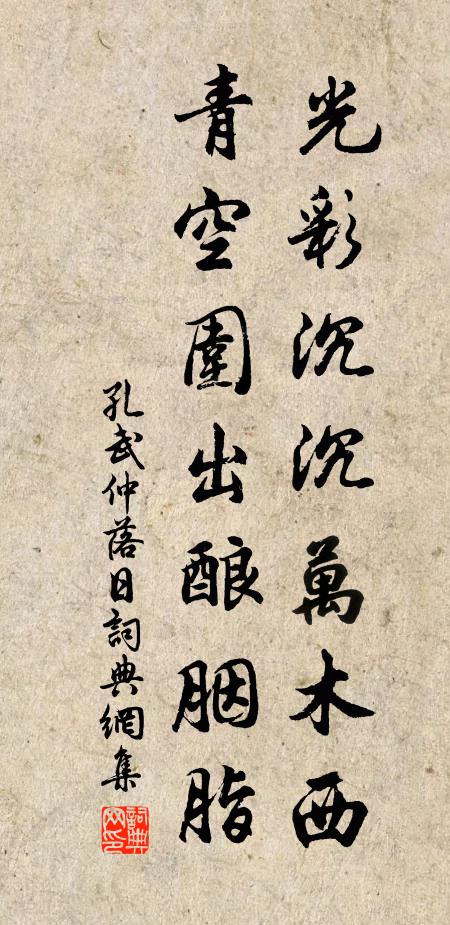 光彩沉沉萬木西
青空圍出酿胭脂
孔武仲落日詞典網集
詞典網印